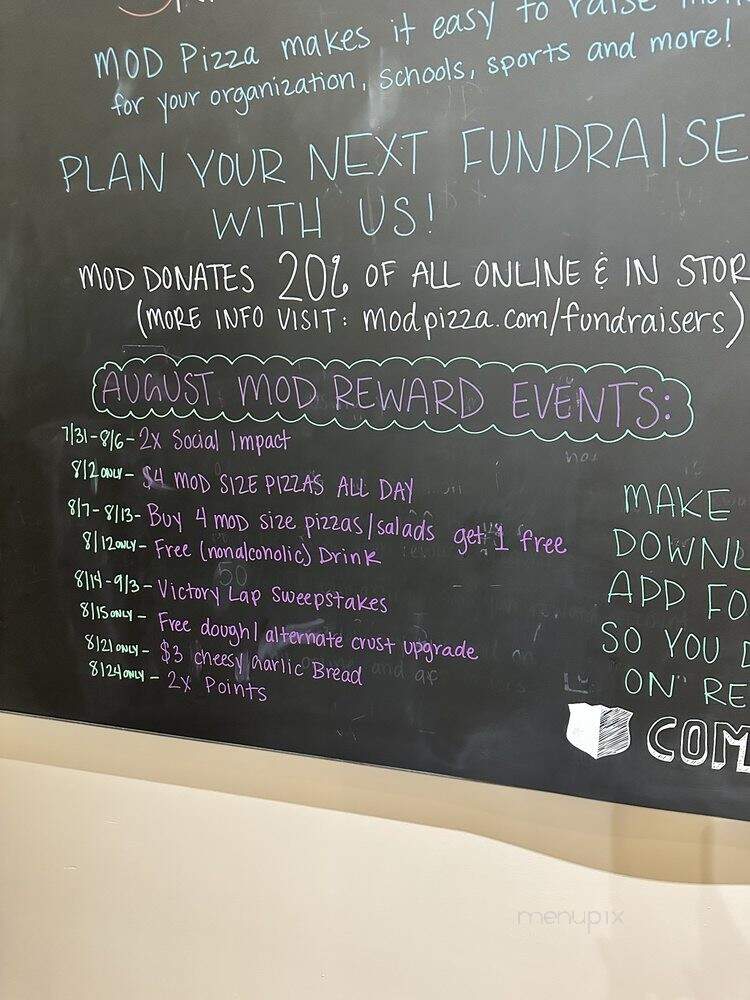 MOD Pizza makes it easy to raise
for your organization, schools, sports and more!
PLAN YOUR NEXT FUNDRAISE
WITH US!
MOD DONATES 20% OF ALL ONLINE & IN STOR
(MORE INFO VISIT: modpizza.com/fundraisers)
AUGUST MOD REWARD EVENTS:
7/31-8/6- 2x Social Impact
8/2 ONLY- $4 MOD SIZE PIZZAS ALL DAY
8/7-8/13- Buy 4 mod size pizzas/salads get 1 free
8/12 ONLY- Free (nonalcoholic) Drink
8/14-9/3- Victory Lap Sweepstakes
8/15 ONLY- Free dough/alternate crust upgrade
8/21 ONLY- $3 cheesy garlic Bread
8/24 ONLY- 2x Points
MAKE
DOWNL
APP FO
SO YOU D
ON RE
COM
menupix